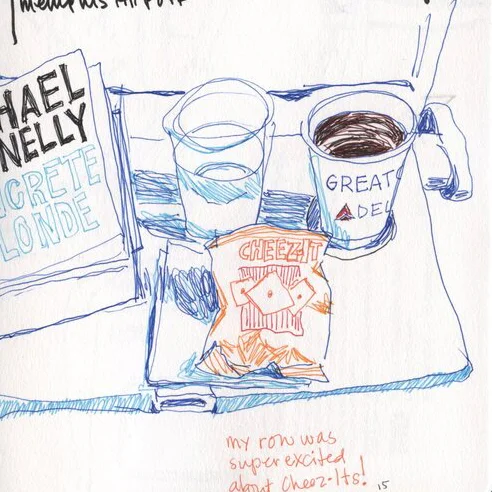 Memphis Airport
HAEL
NNELLY
NCRETE
LONDE
GREAT
DEL
CHEEZ-IT
my row was
super excited
about Cheez-Its!
15